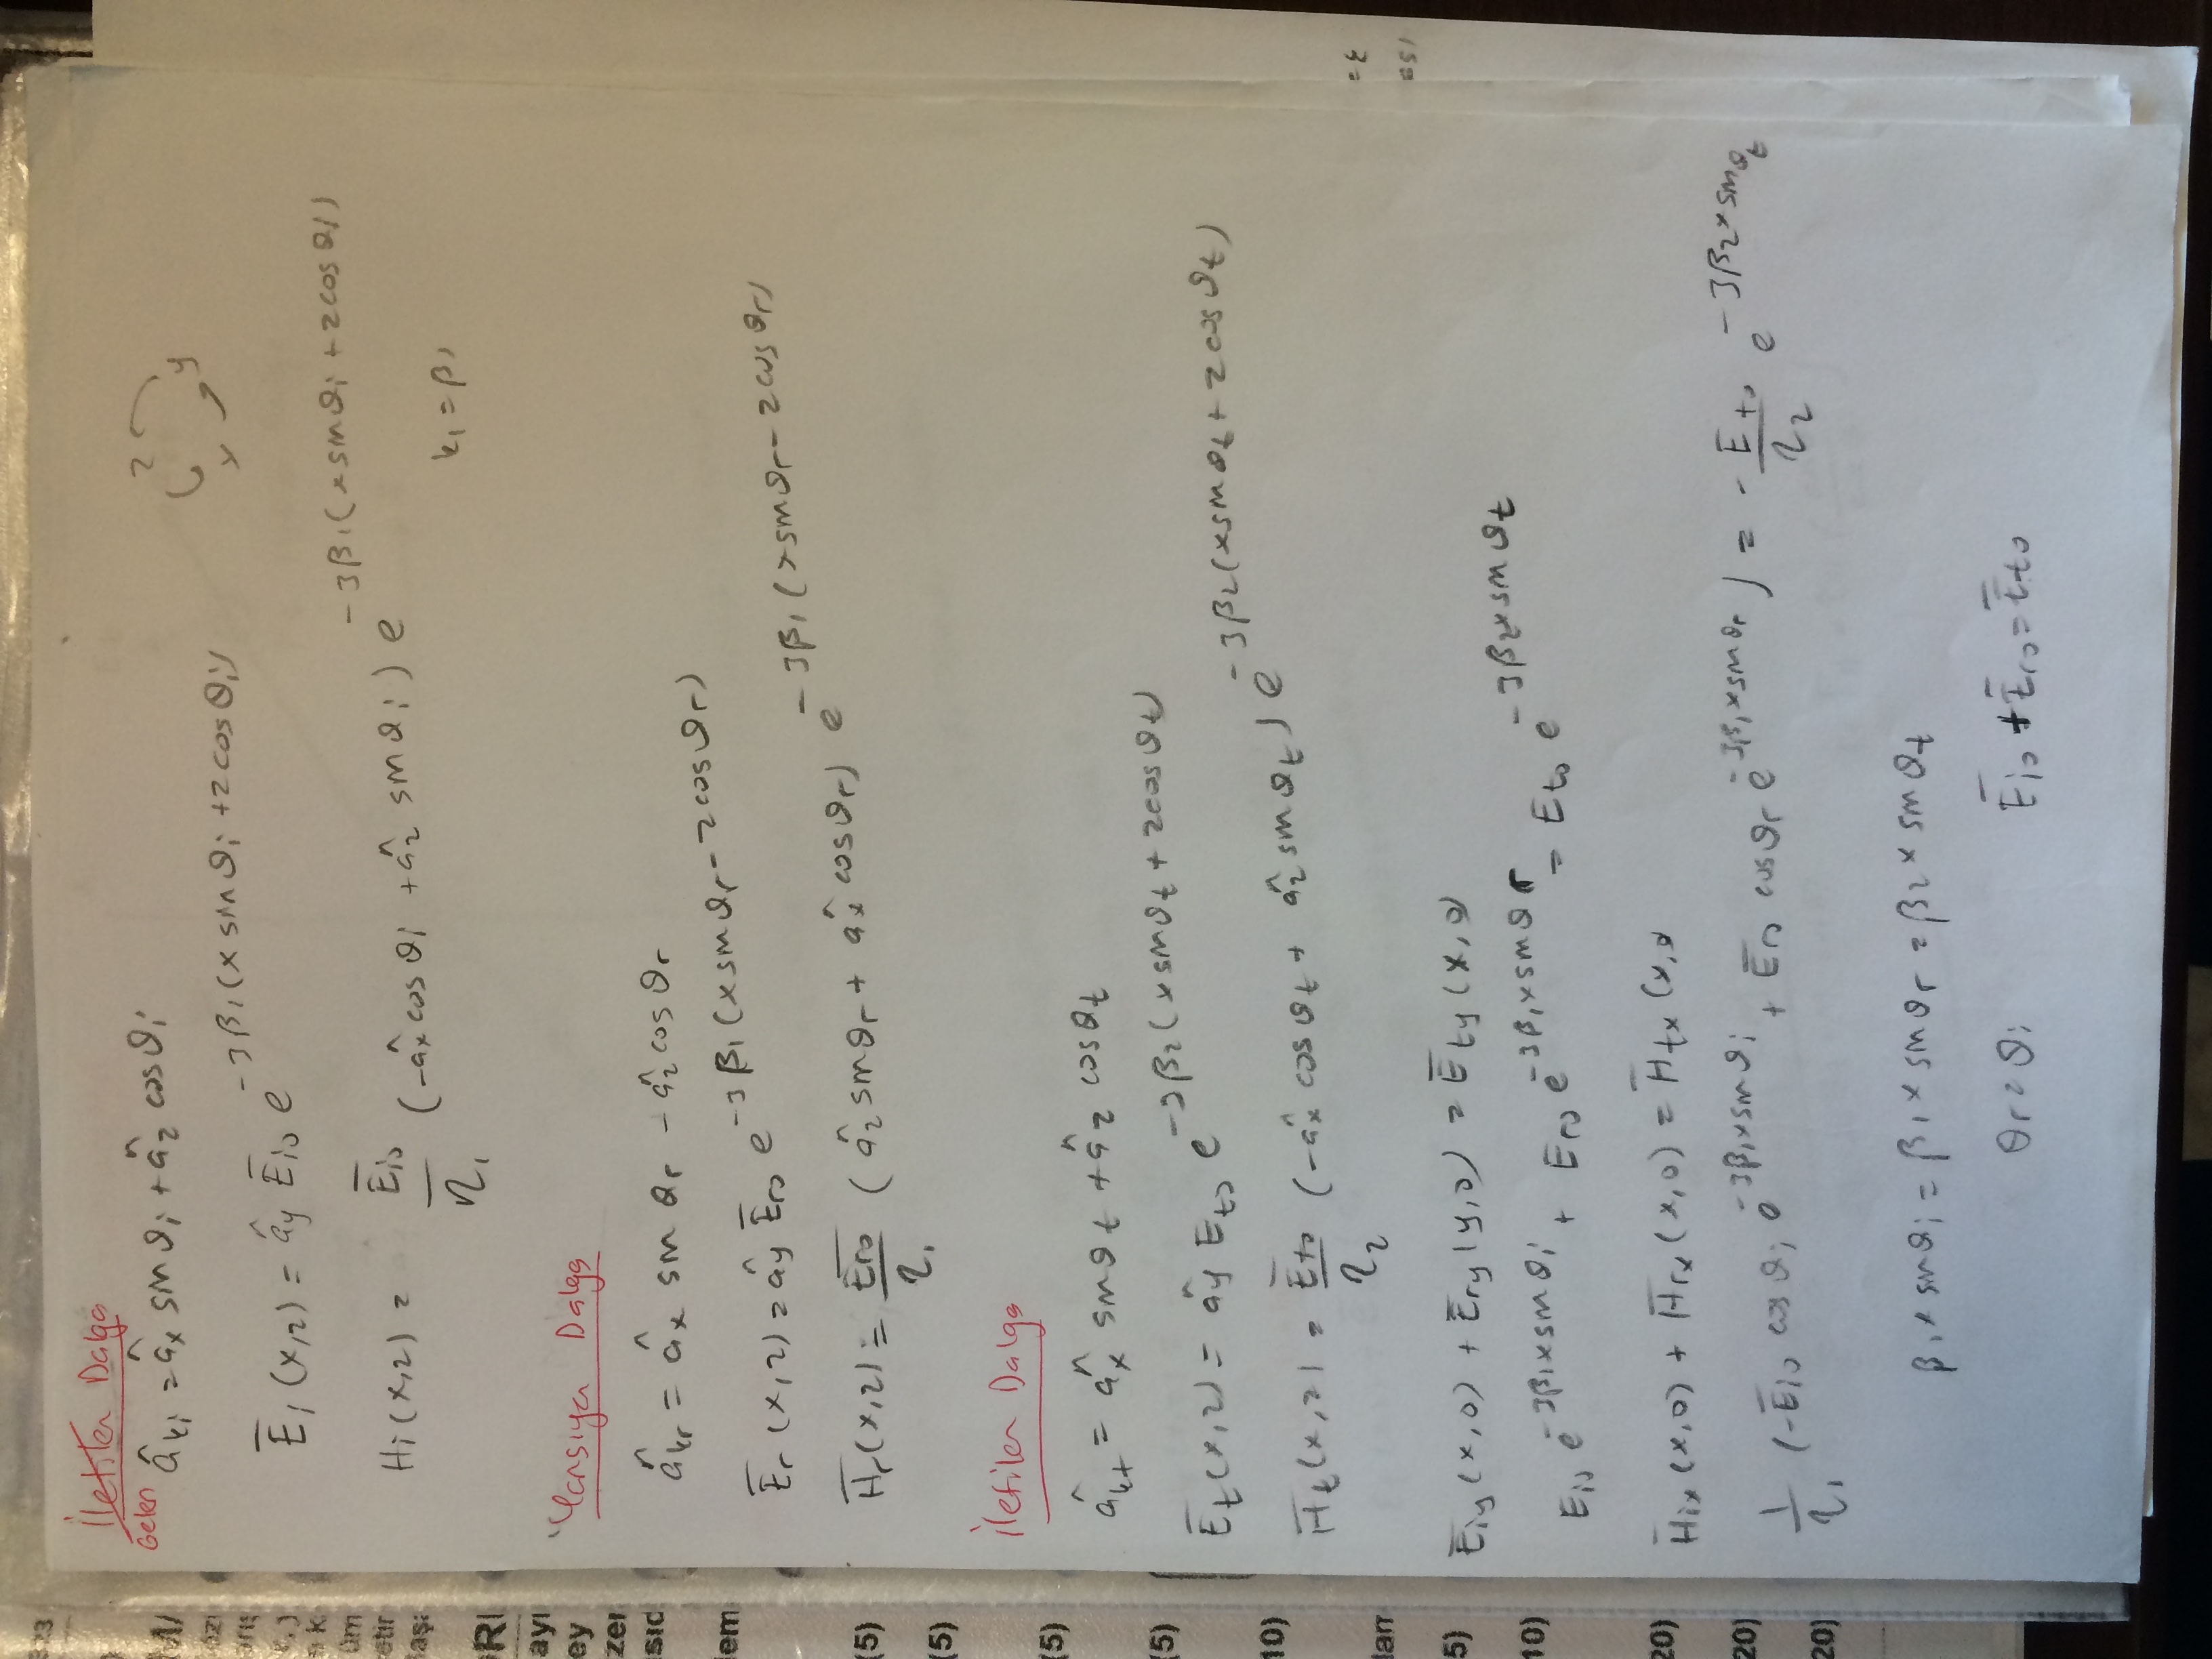 İletilen Dalga
Gelen
âki = âx sinθi + âz cosθi
z y x
E̅i (x,z) = ây E̅io e^-jβ1(x sinθi + z cosθi)
Hi (x,z) = E̅io/η1 (-âx cosθi + âz sinθi) e^-jβ1(x sinθi + z cosθi)
k1 = β1
Yansıyan Dalga
âkr = âx sinθr - âz cosθr
E̅r (x,z) = ây E̅ro e^-jβ1(x sinθr - z cosθr)
H̅r (x,z) = E̅ro/η1 (âz sinθr + âx cosθr) e^-jβ1(x sinθr - z cosθr)
İletilen Dalga
âkt = âx sinθt + âz cosθt
E̅t (x,z) = ây Eto e^-jβ2(x sinθt + z cosθt)
H̅t (x,z) = E̅to/η2 (-âx cosθt + âz sinθt) e^-jβ2(x sinθt + z cosθt)
E̅iy (x,0) + E̅ry (y,0) = E̅ty (x,0)
Eio e^-jβ1x sinθi + Ero e^-jβ1x sinθr = Eto e^-jβ2x sinθt
H̅ix (x,0) + H̅rx (x,0) = H̅tx (x,0
1/η1 (-E̅io cosθi e^-jβ1x sinθi + E̅ro cosθr e^-jβ1x sinθr) = -Eto/η2 e^-jβ2x sinθt
β1x sinθi = β1x sinθr = β2x sinθt
θr = θi E̅io + E̅ro = E̅to
(5)
(5)
(5)
(5)
10)
5)
10)
20)
20)
20)